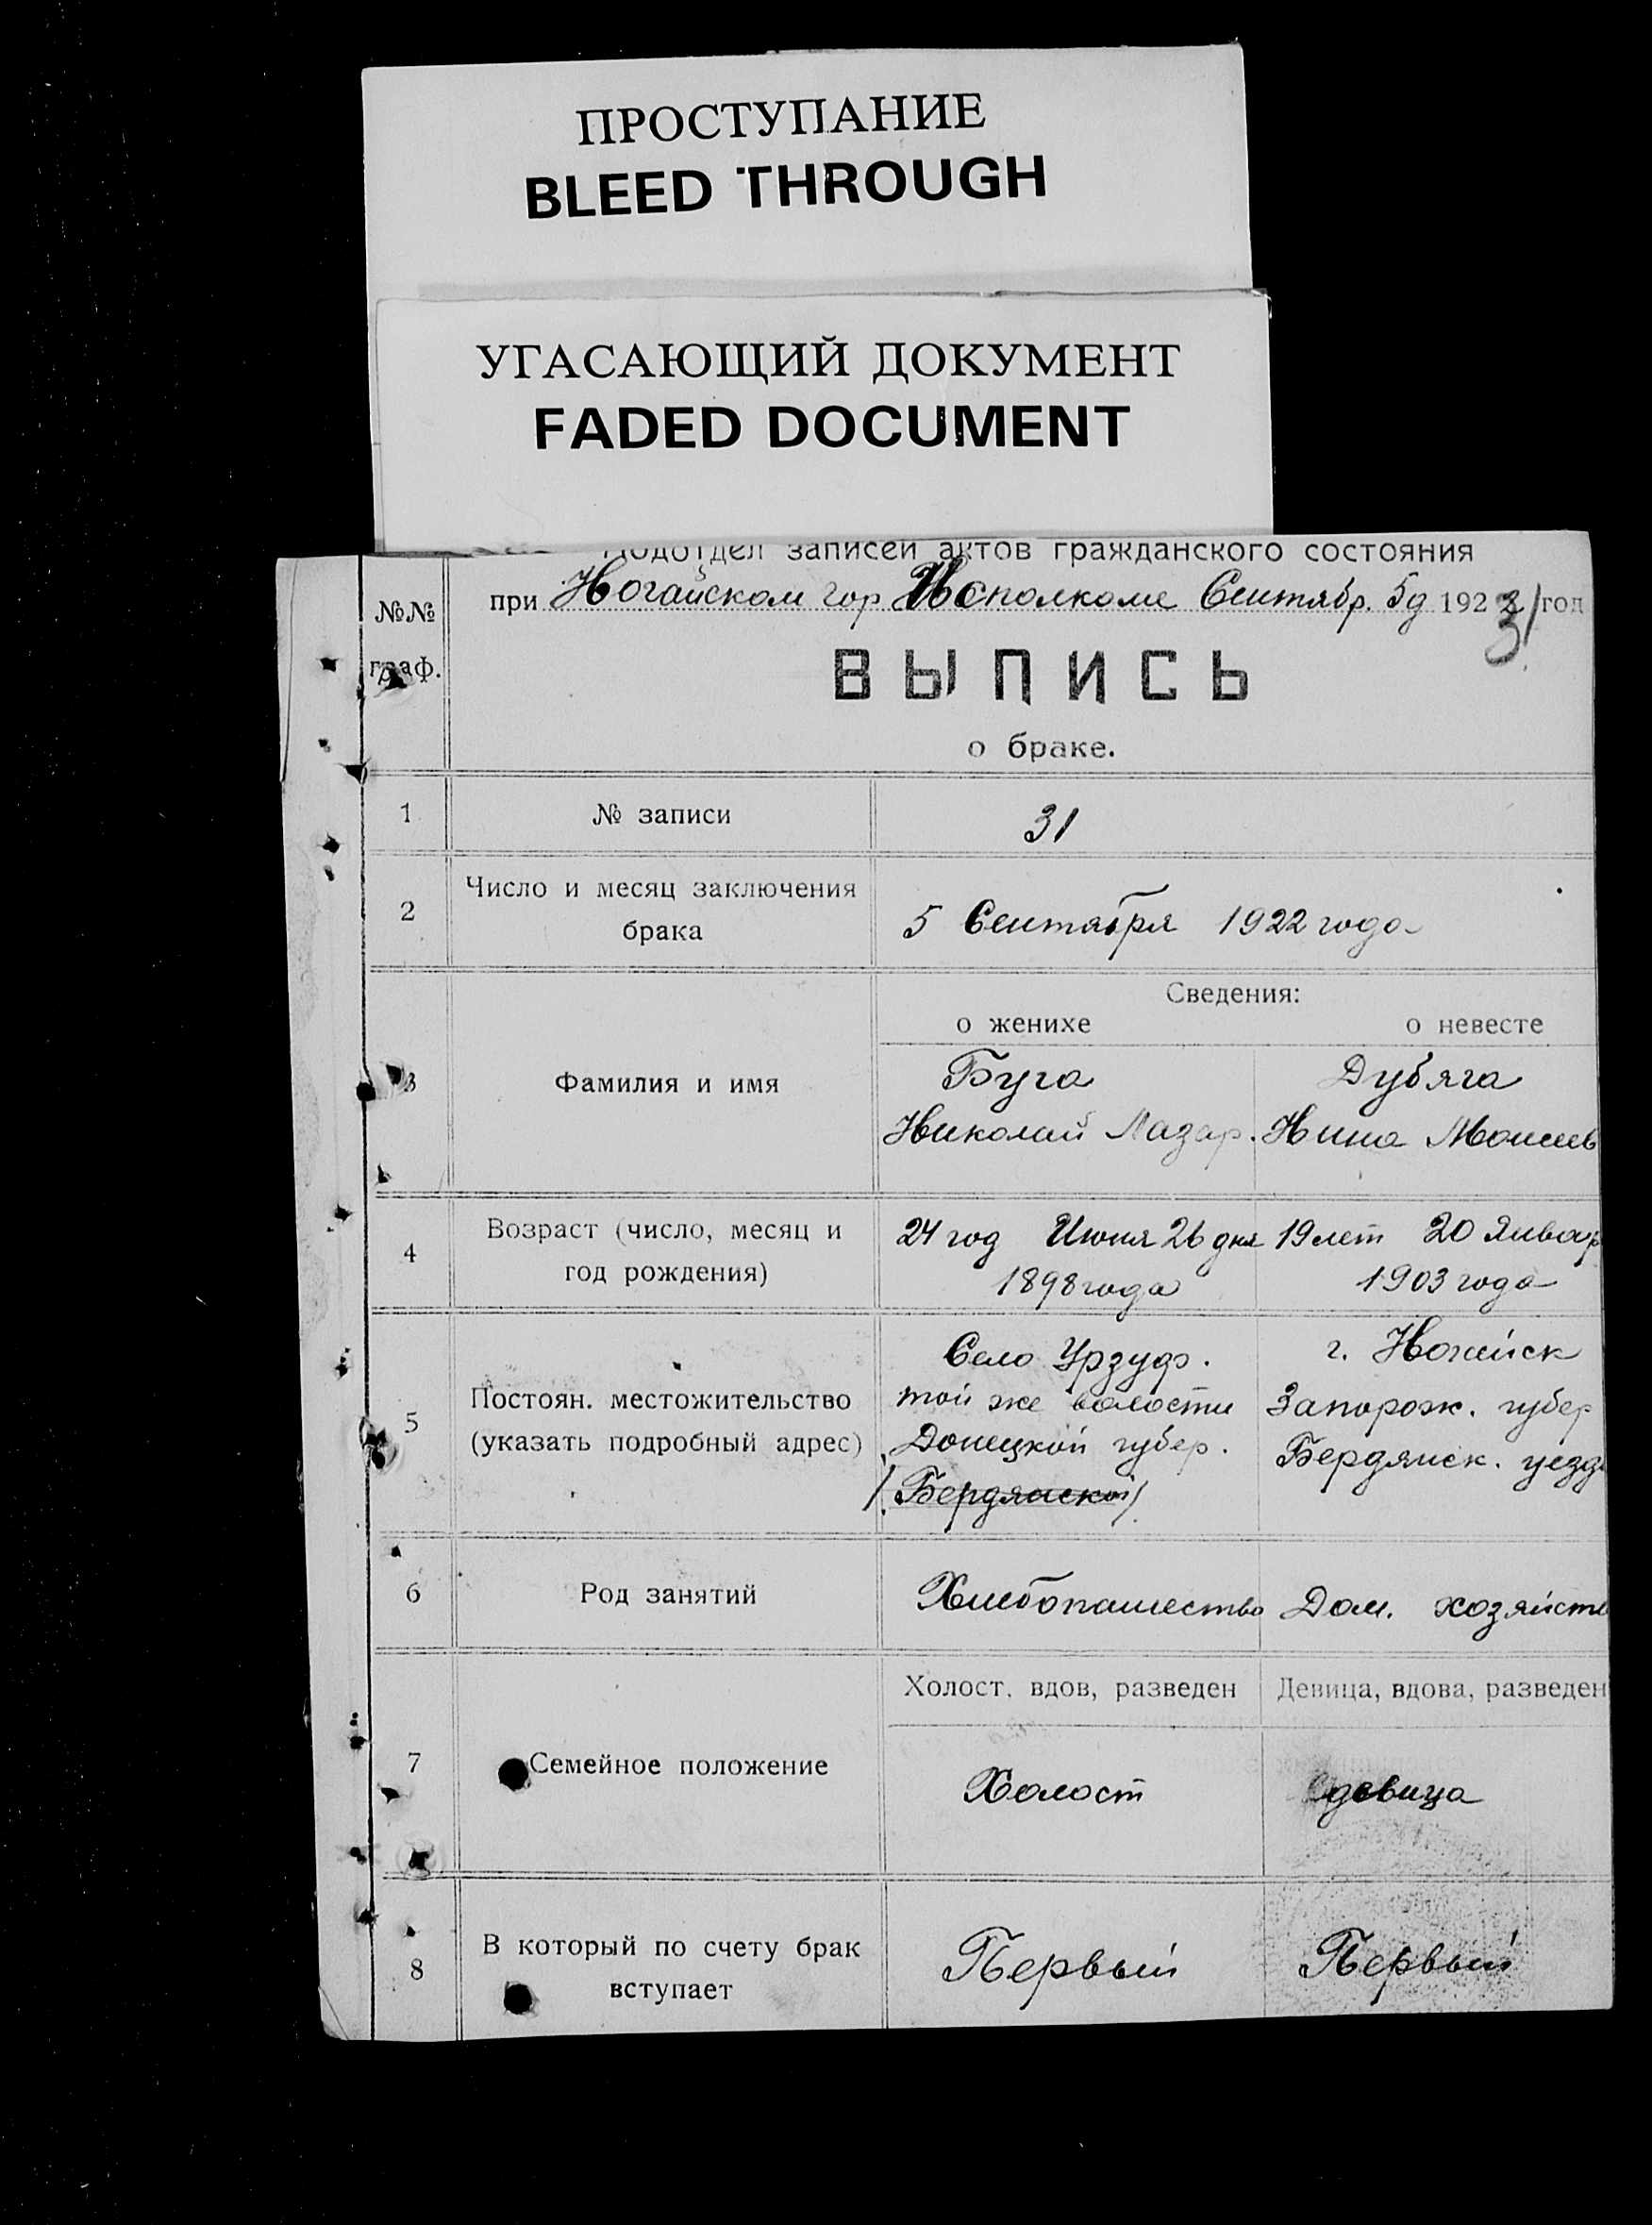 ПРОСТУПАНИЕ
BLEED THROUGH
УГАСАЮЩИЙ ДОКУМЕНТ
FADED DOCUMENT
Подотдел записей актов гражданского состояния
при Ногайском гор Исполкоме Сентябр. 5д 1922 год
31
№№
граф.
ВЫПИСЬ
о браке.
1 № записи 31
2 Число и месяц заключения
брака
5 Сентября 1922 года
Сведения:
о женихе о невесте
3 Фамилия и имя
Буга Дубяга
Николай Лазар. Нина Моисеев
4 Возраст (число, месяц и
год рождения)
24 год Июня 26 дня 19 лет 20 Январ
1898 года 1903 года
5 Постоян. местожительство
(указать подробный адрес)
Село Урзуф. г. Ногайск
той же волости Запорож. губер
Донецкой губер. Бердянск. уезд
/Бердянской/
6 Род занятий Хлебопашество Дом. хозяйств
Холост, вдов, разведен Девица, вдова, разведен
7 Семейное положение
Холост девица
8 В который по счету брак
вступает
Первый Первый